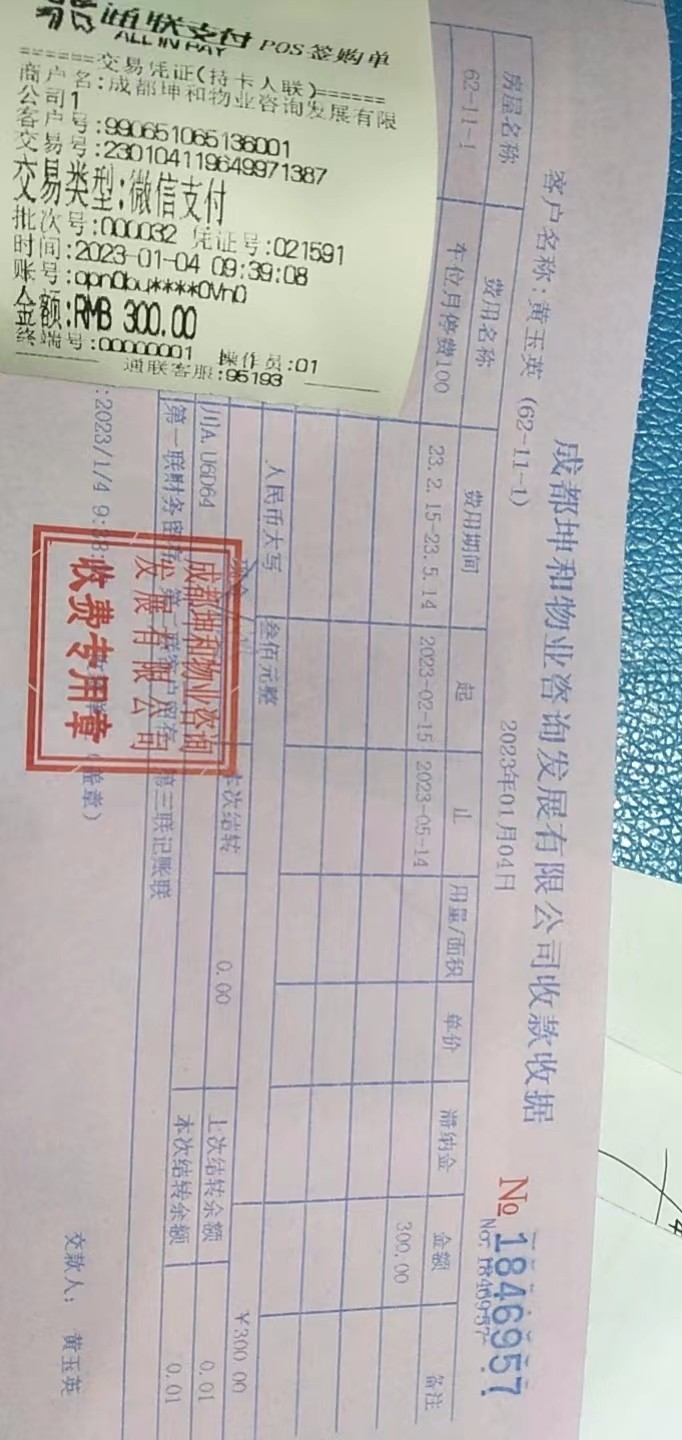 通联支付 POS签购单
ALL IN PAY
======交易凭证(持卡人联)======
商户名:成都坤和物业咨询发展有限
公司1
客户号:990651065136001
交易号:2301041196499713​87
交易类型:微信支付
批次号:000032 凭证号:021591
时间:2023-01-04 09:39:08
账号:opn0bu****0Vn0
金额:RMB 300.00
终端号:00000001 操作员:01
通联客服:95193
成都坤和物业咨询发展有限公司收款收据
№ 1846957
No. 1846957
客户名称:黄玉英 (62-11-1) 2023年01月04日
房屋名称 费用名称 费用期间 起 止 用量/面积 单价 滞纳金 金额 备注
62-11-1 车位月停费100 23.2.15-23.5.14 2023-02-15 2023-05-14 300.00
人民币大写 叁佰元整 ¥300.00
川A.U6D64 本次结转 0.00 上次结转余额 0.01
本次结转余额 0.01
第一联财务留存 第二联客户留存 第三联记账联
:2023/1/4 9:38: 盖章) 交款人: 黄玉英
成都坤和物业咨询
发展有限公司
收费专用章